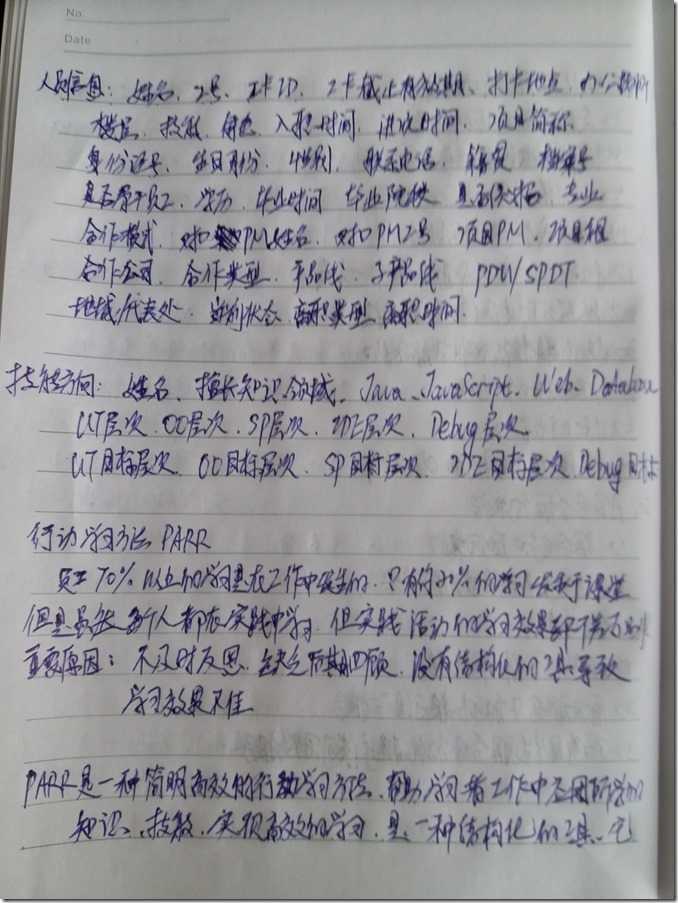 No.
Date
人员信息：姓名、工号、工卡ID、工卡截止有效期、打卡地点、办公场所
楼层、技能、角色、入职时间、进场时间、项目简称
身份证号、出生月份、性别、联系电话、籍贯、档案号
是否骨干员工、学历、毕业时间、毕业院校、是否统招、专业
合作模式、对口PM姓名、对口PM工号、项目PM、项目组
合作公司、合作类型、产品线、子产品线 PDU/SPDT
地域/代表处、在离状态、离职类型、离职时间.
技能方向：姓名、擅长知识领域、Java、JavaScript、Web、Database
UT层次、OO层次、SP层次、IDE层次、Debug层次
UT目标层次、OO目标层次、SP目标层次、IDE目标层次、Debug目标
行动学习方法 PARR
员工70%以上的学习是在工作中发生的，只有约10%的学习发生于课堂
但是虽然每个人都在实践中学习，但实践活动的学习效果却不
重要原因：不及时反思，缺乏后期回顾，没有结构化的工具导致
学习效果不佳
PARR是一种简明高效的行动学习方法，帮助学习者工作中巩固所学的
知识、技能，实现高效的学习，是一种结构化的工具，它